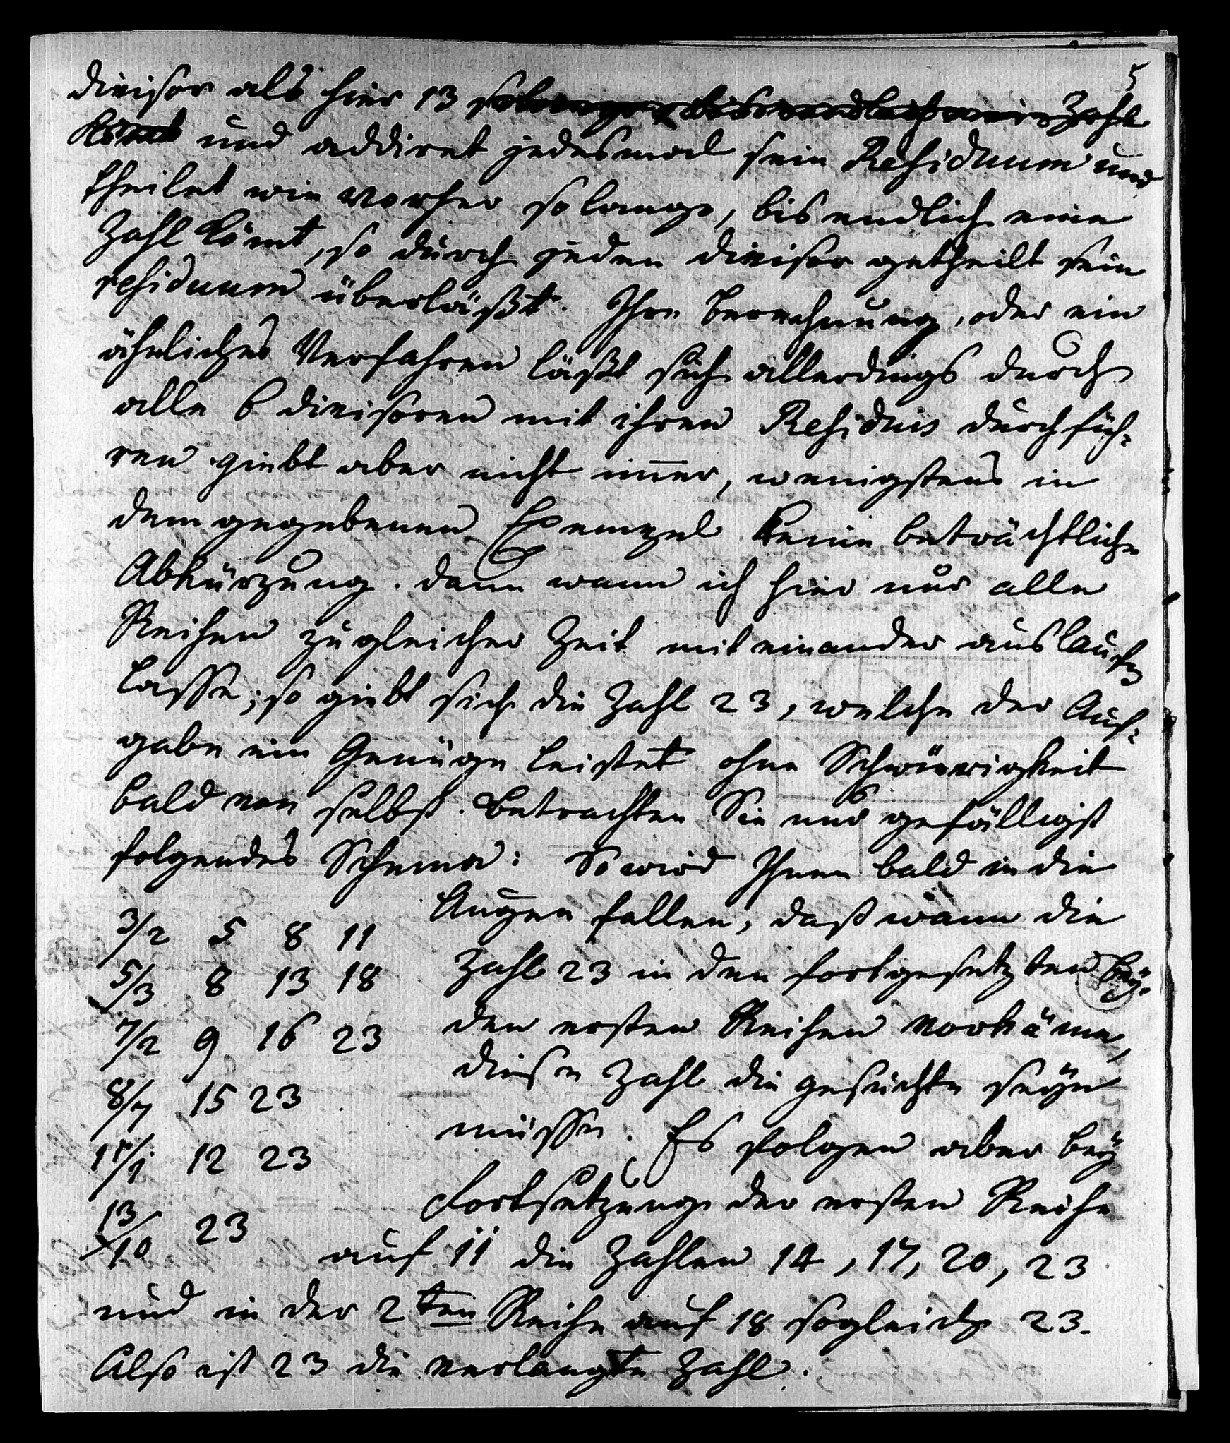 5
divisor als hier 13 solange, bis endlich eine Zahl
kömt und addiret jedesmal sein Residuum und
theilet wie vorher solange, bis endlich eine
Zahl kömt, so durch jeden divisor getheilt sein
residuum überläßt. Ihre Berechnung, oder ein
ähnliches Verfahren läßt sich allerdings durch
alle 6 divisoren mit ihren Residuis durchfüh-
ren giebt aber nicht imer, wenigstens in
dem gegebenen Exempel keine beträchtliche
Abkürzung. dann wann ich hier nur alle
Reihen zu gleicher Zeit mit einander auslaufen
lasse; so giebt sich die Zahl 23, welche der Auf-
gabe ein Genüge leistet ohne Schwürigkeit
bald von selbst. Betrachten Sie nur gefälligst
folgendes Schema: So wird Ihnen bald in die
Augen fallen, daß wann die
3/2 5 8 11
Zahl 23 in den fortgesetzten bey-
5/3 8 13 18
den ersten Reihen vorkäme,
7/2 9 16 23
diese Zahl die gesuchte seyn
8/7 15 23
müsse. Es folgen aber bey
11/1 12 23
Fortsetzung der ersten Reihe
13/10 23
auf 11 die Zahlen 14, 17, 20, 23
und in der 2ten Reihe auf 18 sogleich 23.
Also ist 23 die verlangte Zahl.